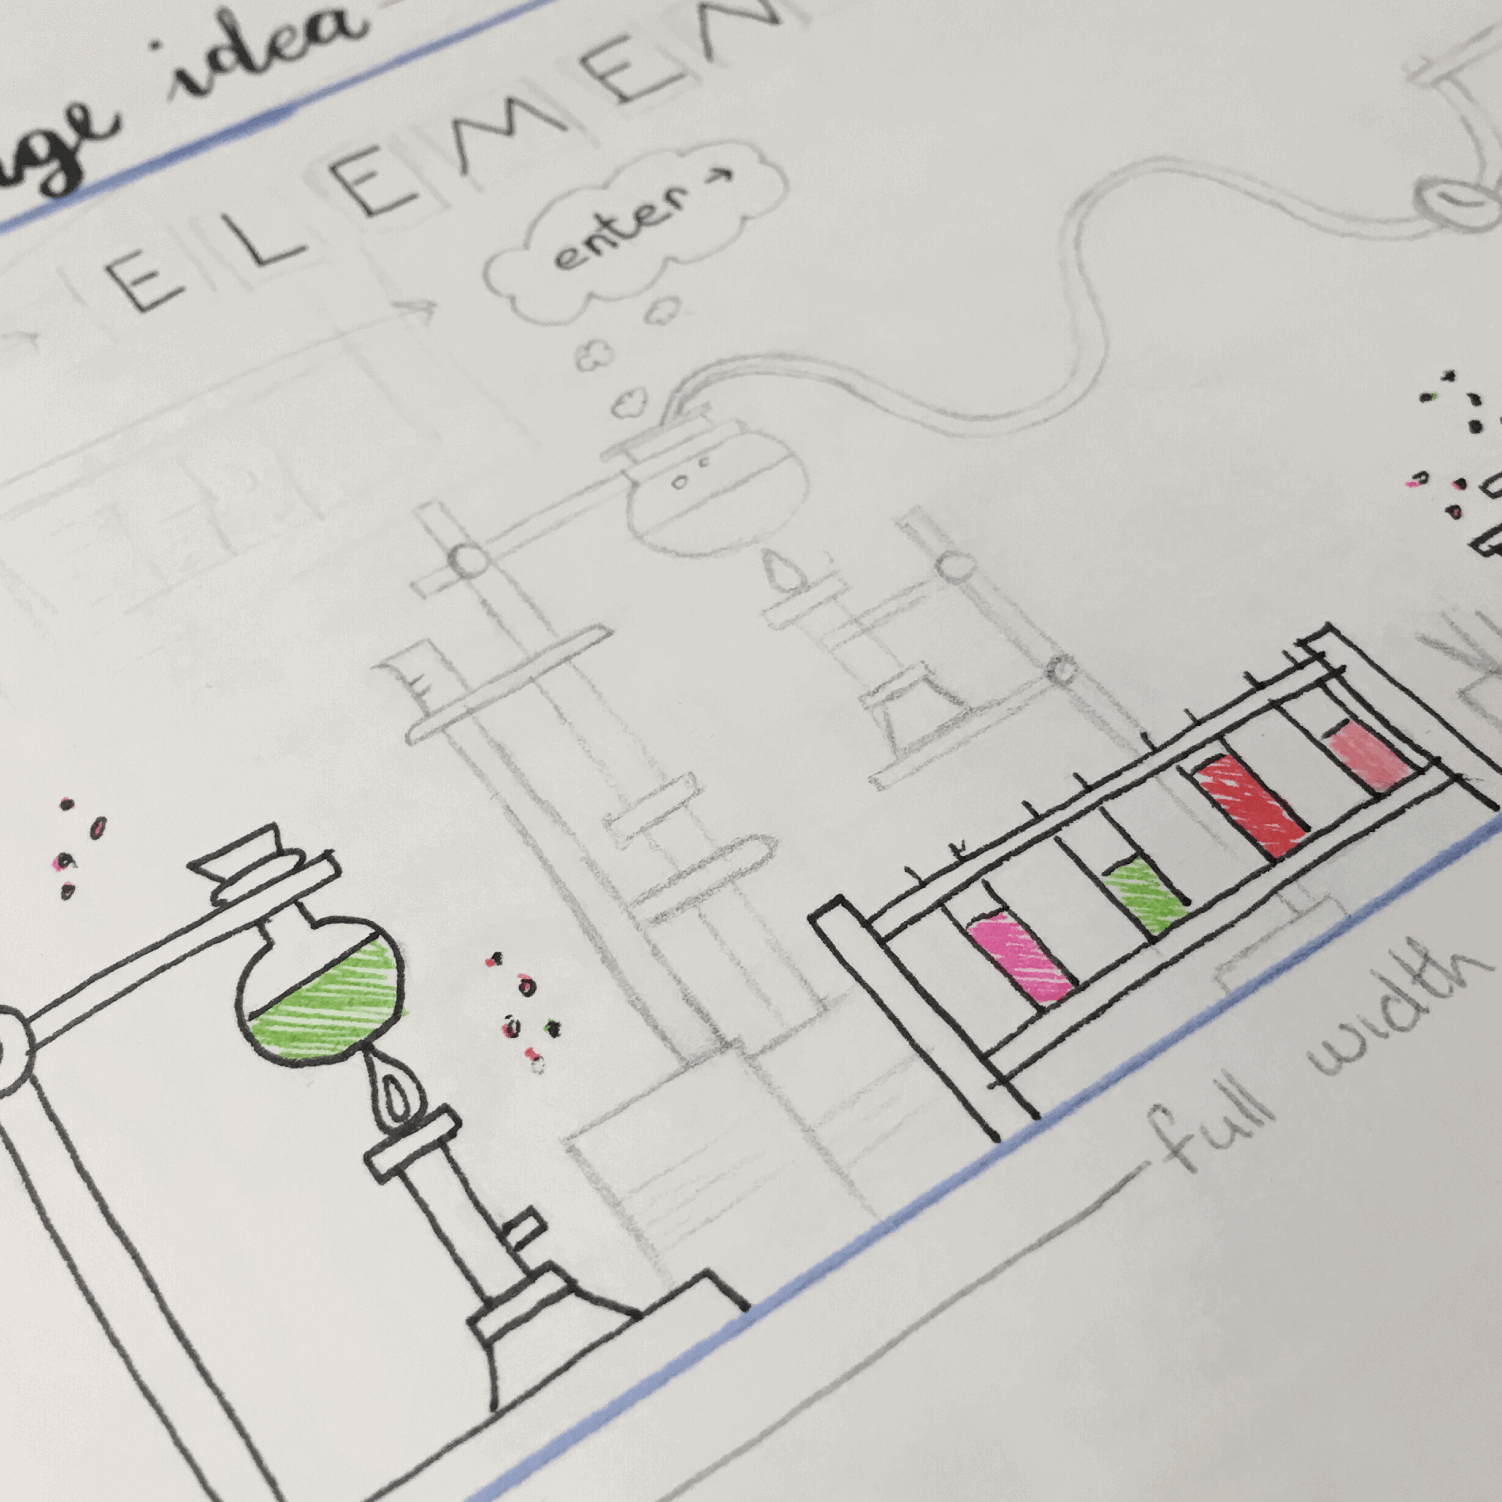 idea
ELEMEN
enter →
full width